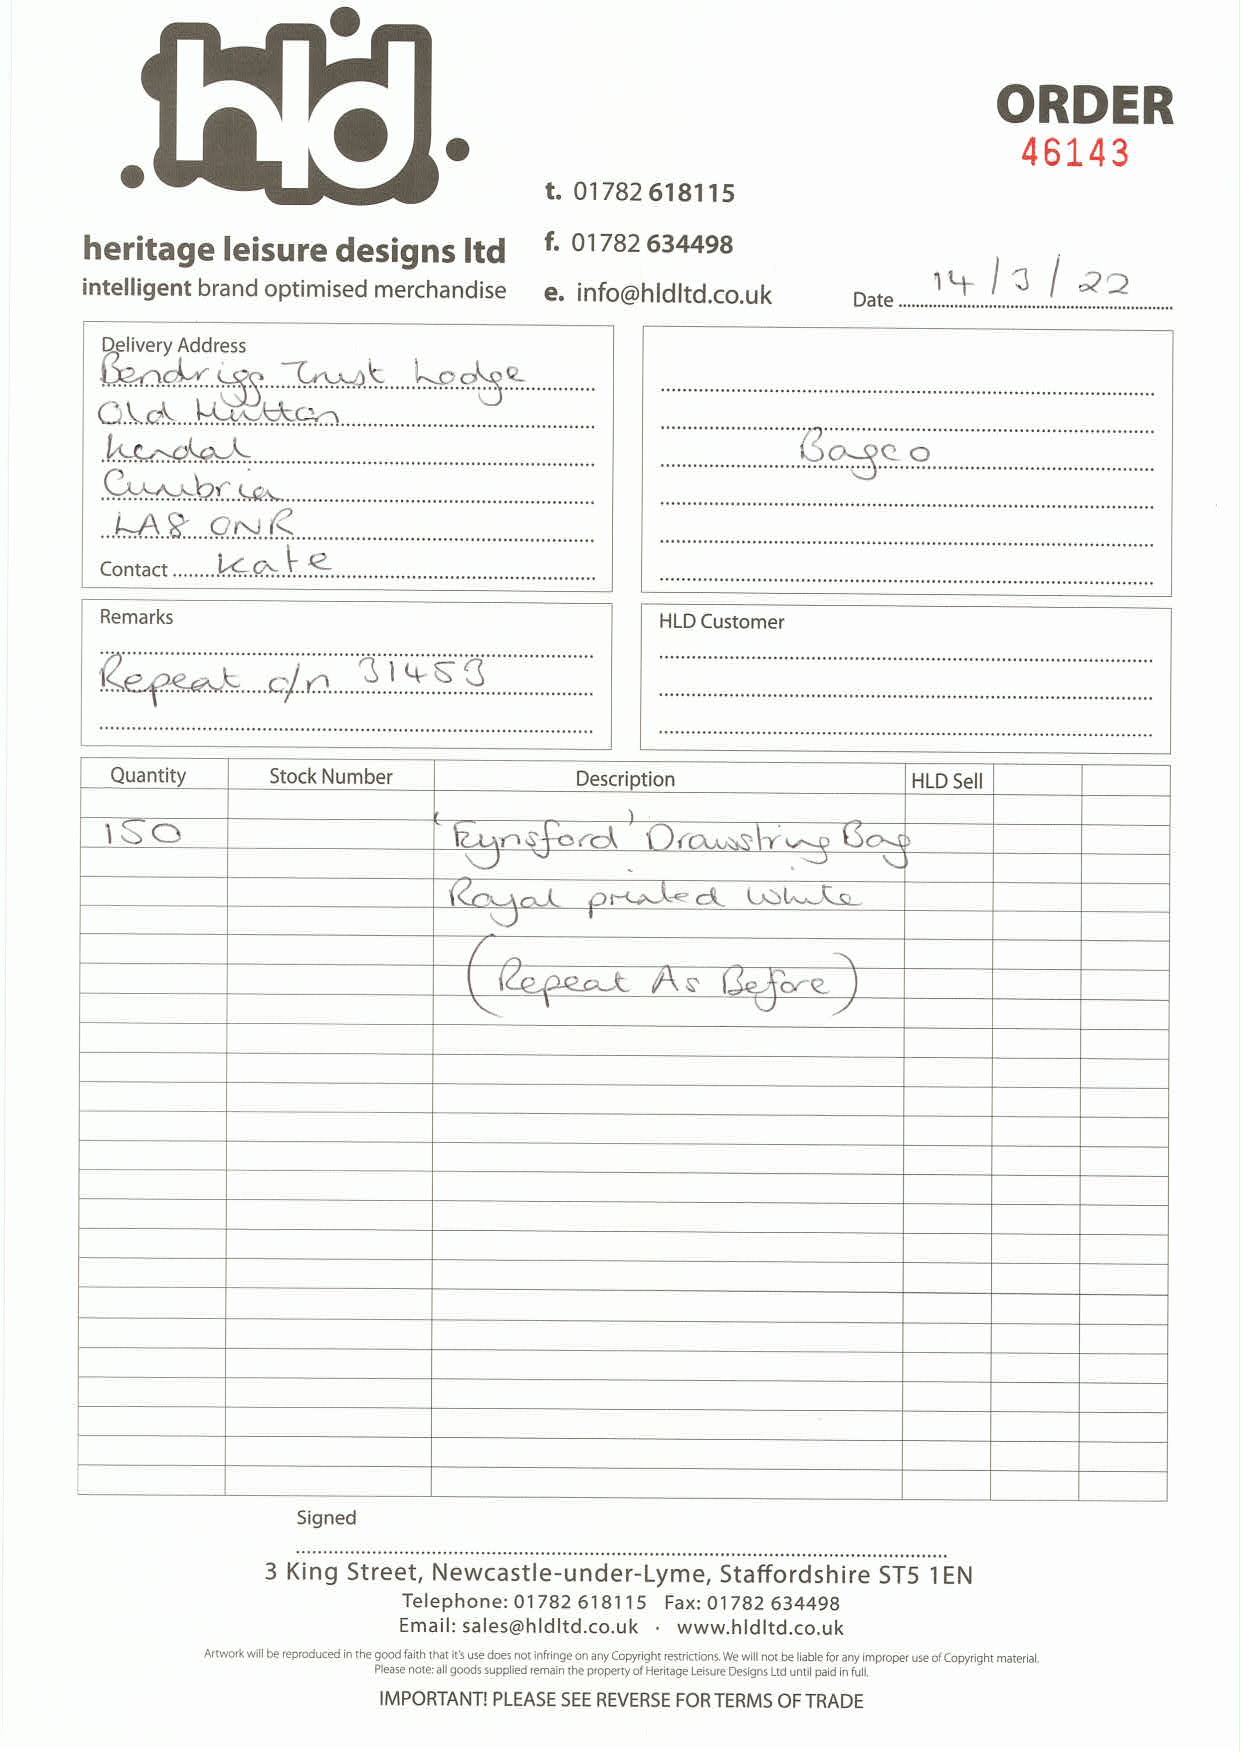 hld.
ORDER
46143
t. 01782 618115
heritage leisure designs ltd
f. 01782 634498
intelligent brand optimised merchandise
e. info@hldltd.co.uk
Date 14/3/22
Delivery Address
Bendrigg Trust Lodge
Old Hutton
Kendal
Cumbria
LA8 0NR
Contact Kate
Bagco
Remarks
Repeat o/n 31453
HLD Customer
Quantity Stock Number Description HLD Sell
150 'Eynsford' Drawstring Bag
Royal printed White
(Repeat As Before)
Signed
3 King Street, Newcastle-under-Lyme, Staffordshire ST5 1EN
Telephone: 01782 618115 Fax: 01782 634498
Email: sales@hldltd.co.uk · www.hldltd.co.uk
Artwork will be reproduced in the good faith that it's use does not infringe on any Copyright restrictions. We will not be liable for any improper use of Copyright material.
Please note: all goods supplied remain the property of Heritage Leisure Designs Ltd until paid in full.
IMPORTANT! PLEASE SEE REVERSE FOR TERMS OF TRADE